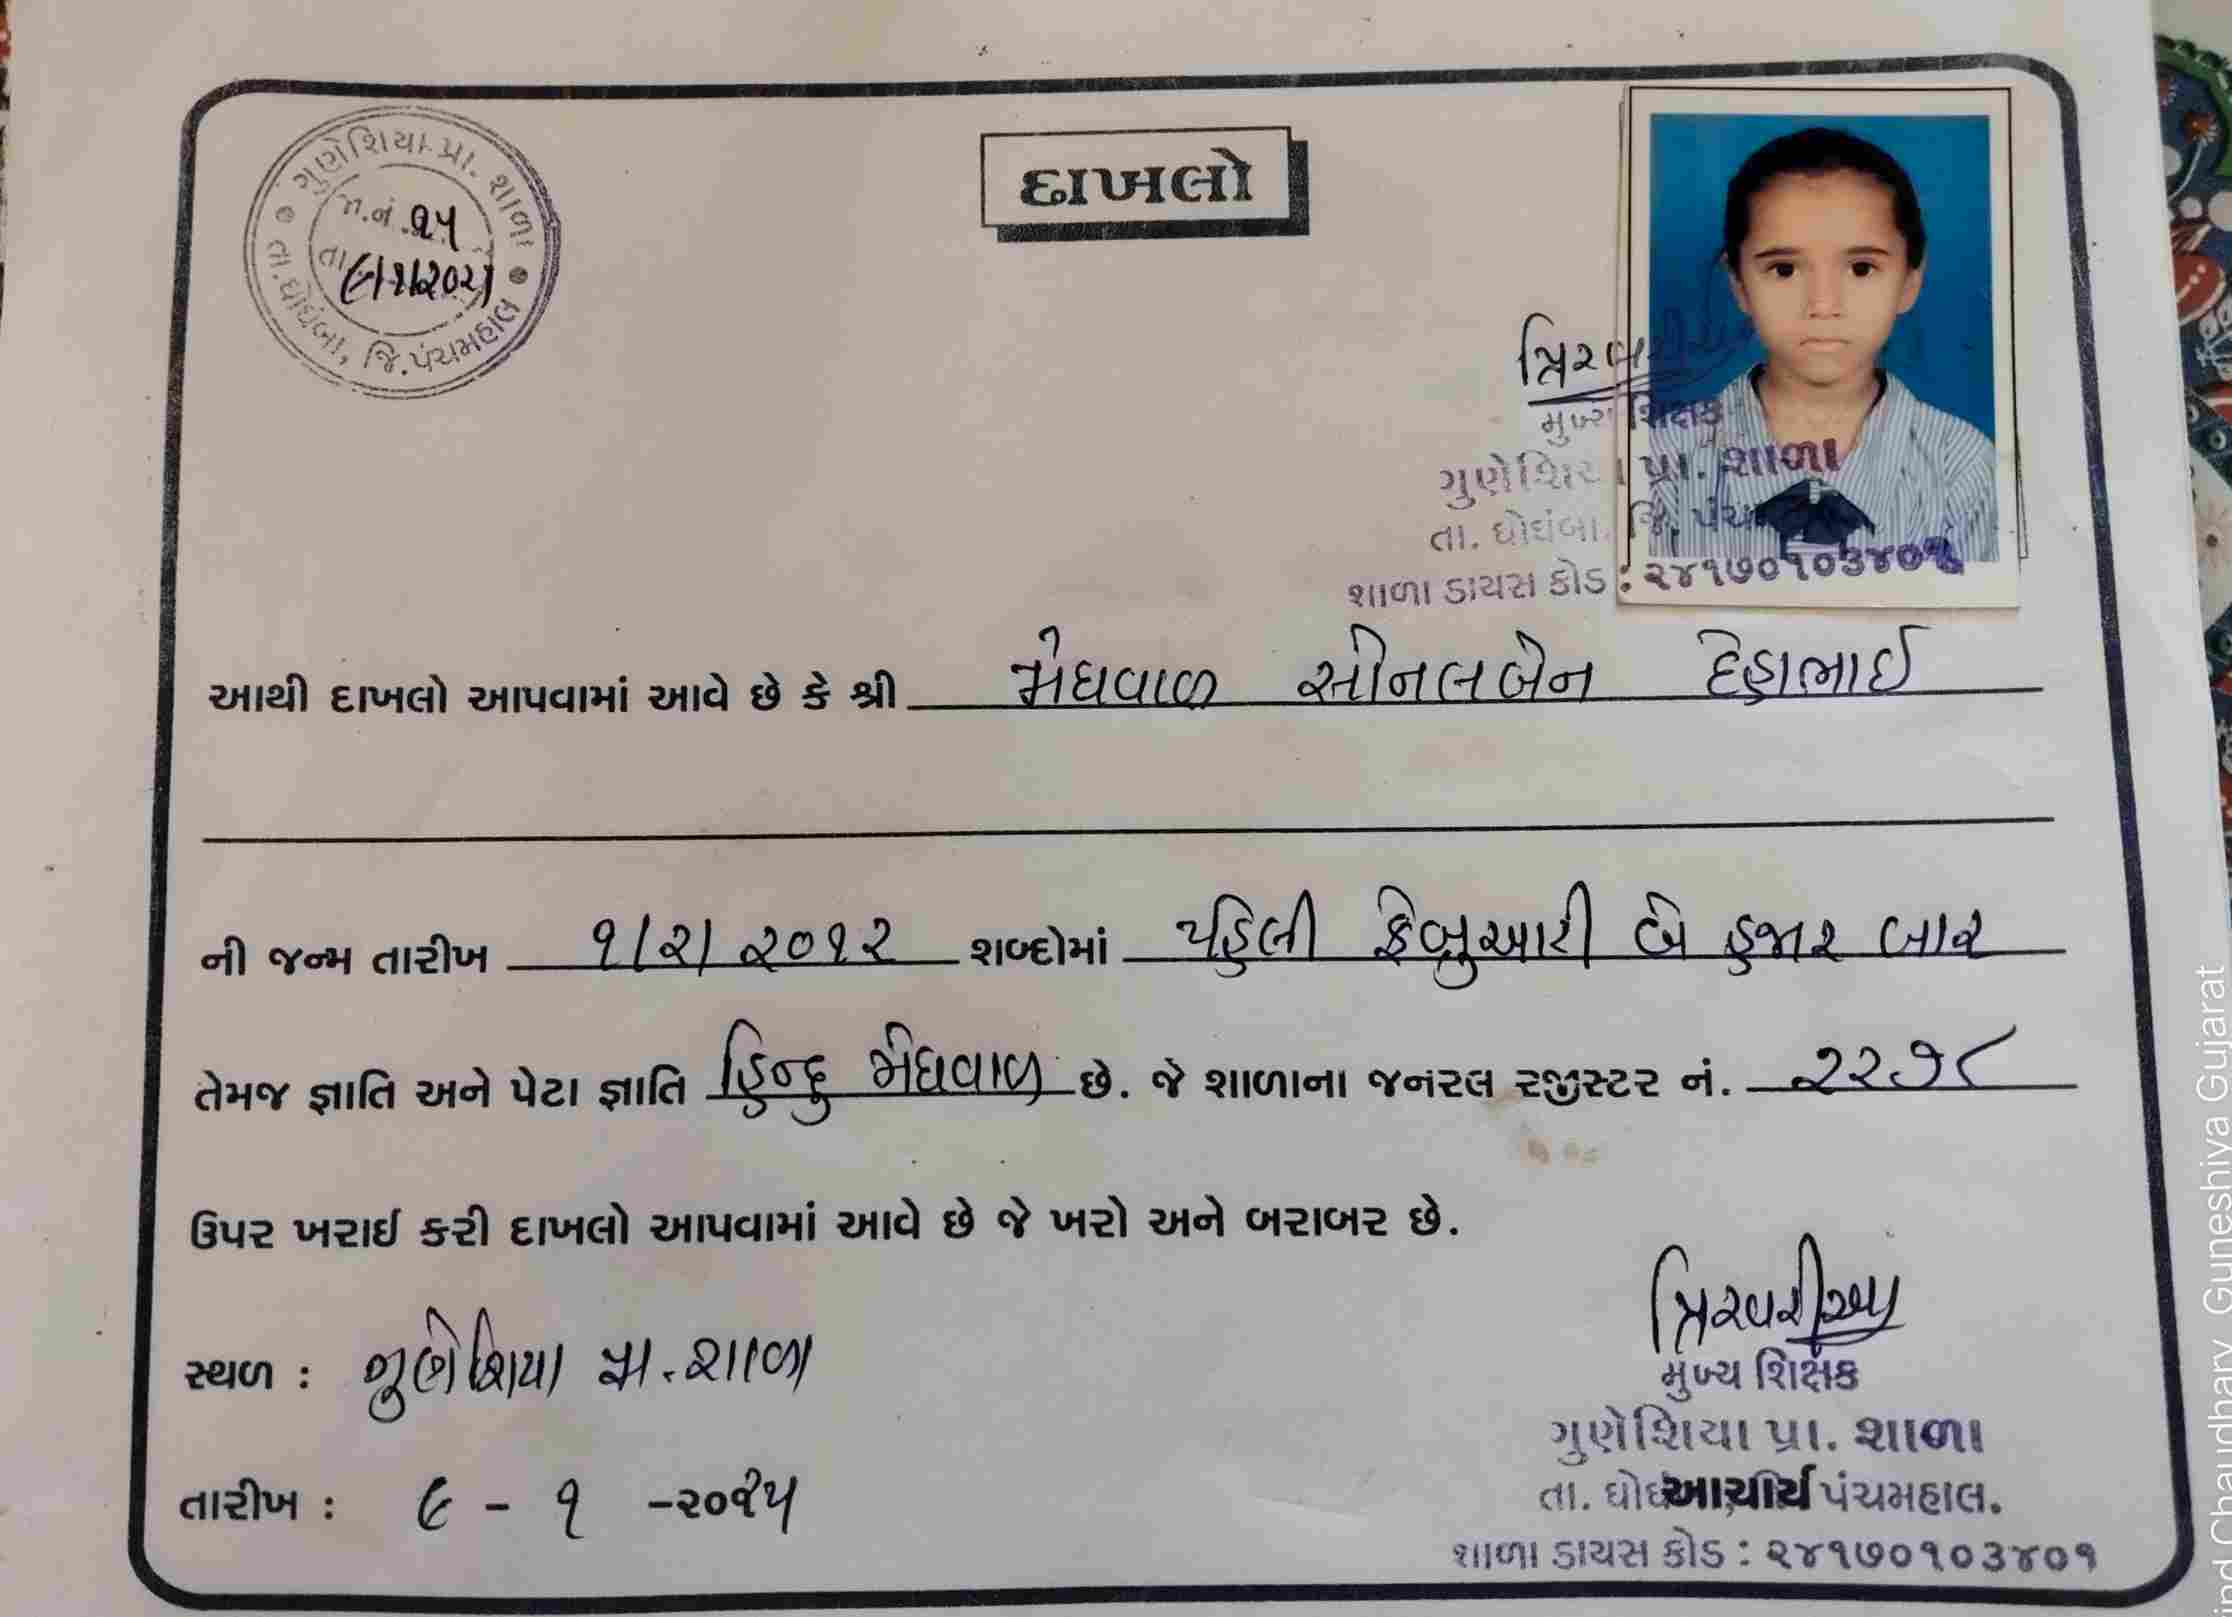 દાખલો
ગુણેશિયા પ્રા. શાળા
જા.નં. ૨૫
તા.
તા.ઘોઘંબા, જિ.પંચમહાલ
મુખ્ય શિક્ષક
ગુણેશિયા પ્રા. શાળા
તા. ઘોઘંબા. જિ. પંચ
શાળા ડાયસ કોડ : ૨૪૧૭૦૧૦૩૪૦૧
આથી દાખલો આપવામાં આવે છે કે શ્રી મેઘવાળ સોનલબેન દેહાભાઈ
ની જન્મ તારીખ ૧/૨/૨૦૧૨ શબ્દોમાં પહેલી ફેબ્રુઆરી બે હજાર બાર
તેમજ જ્ઞાતિ અને પેટા જ્ઞાતિ હિન્દુ મેઘવાળ છે. જે શાળાના જનરલ રજીસ્ટર નં. ૨૨૭૮
ઉપર ખરાઈ કરી દાખલો આપવામાં આવે છે જે ખરો અને બરાબર છે.
સ્થળ : ગુણેશિયા પ્રા. શાળા
મુખ્ય શિક્ષક
ગુણેશિયા પ્રા. શાળા
તારીખ : ૯ - ૧ -૨૦૨૫
તા. આચાર્ય પંચમહાલ.
શાળા ડાયસ કોડ : ૨૪૧૭૦૧૦૩૪૦૧
Chaudhary Guneshiya Gujarat